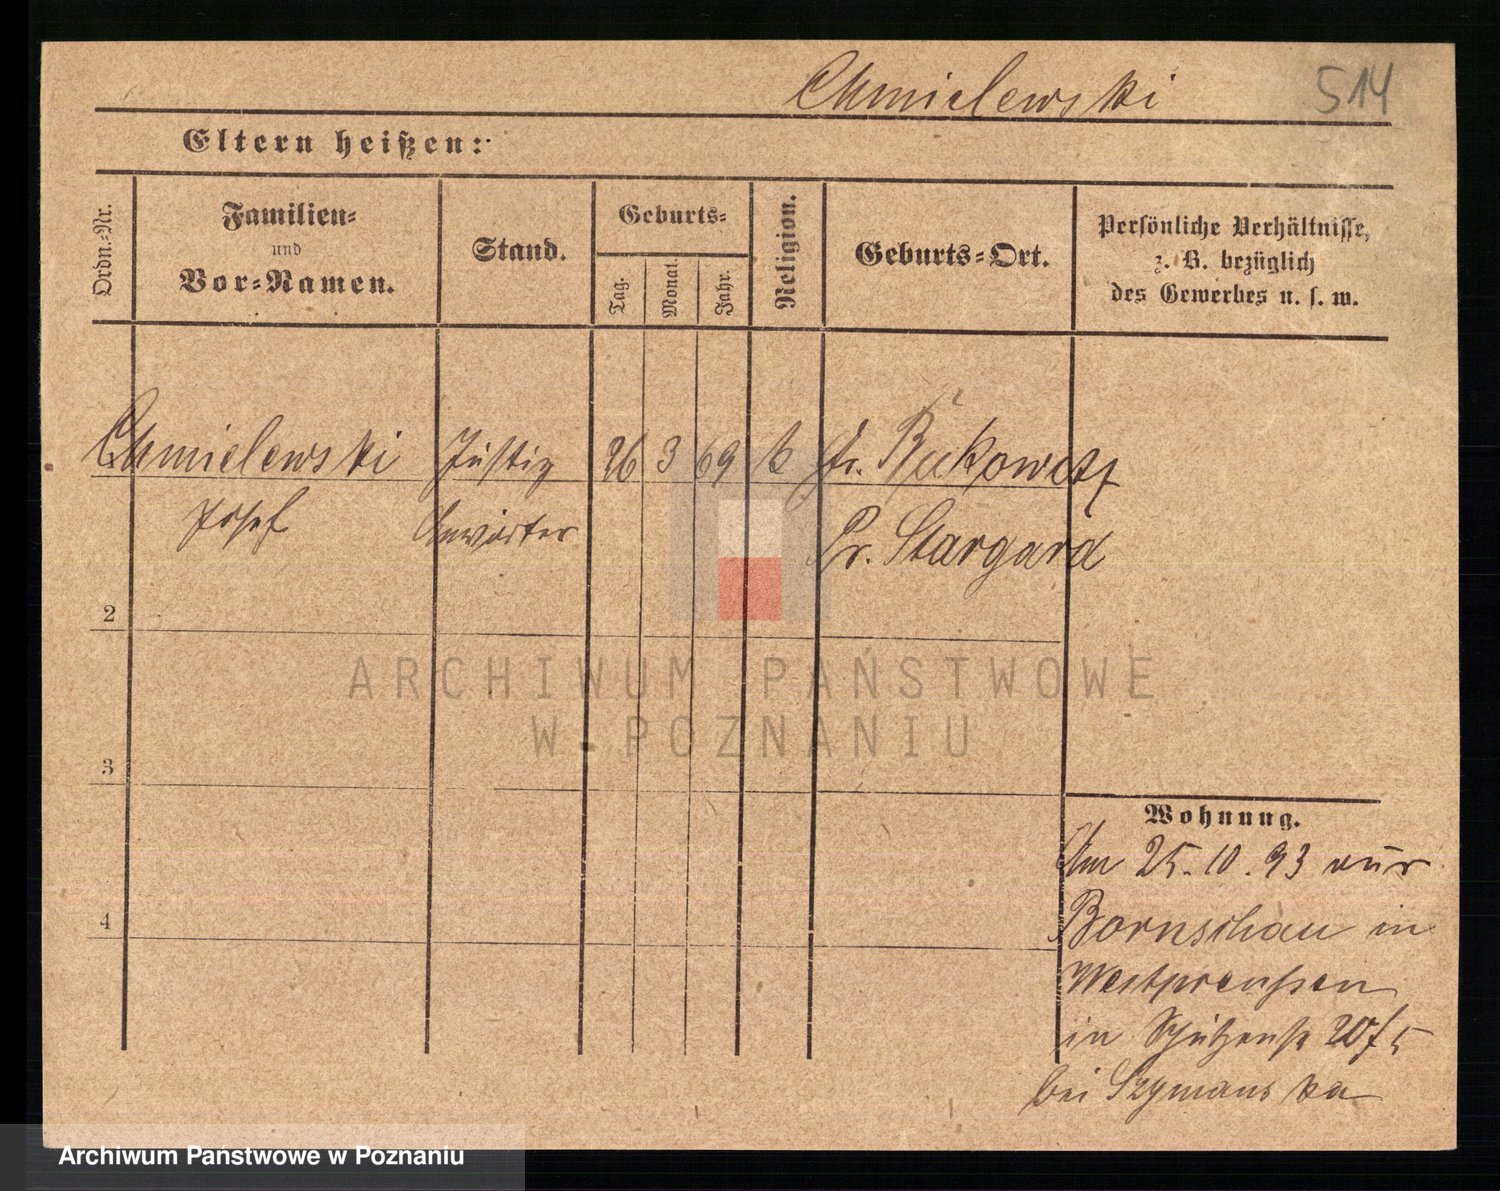 Chmielewski 514
Eltern heißen:
Ordn.-Nr.
Familien-
und
Vor-Namen.
Stand.
Geburts-
Tag.
Monat.
Jahr.
Religion.
Geburts-Ort.
Persönliche Verhältnisse,
z. B. bezüglich
des Gewerbes u. s. w.
1 Chmielewski Justiz 26 3 69 k Gr. Bukowitz
Josef Anwärter Pr. Stargard
2
3
4
Wohnung.
Am 25.10.93 aus
Bornschau in
Westpreußen
in Schützenstr 20
bei Szymanska
ARCHIWUM PAŃSTWOWE
W POZNANIU
Archiwum Państwowe w Poznaniu